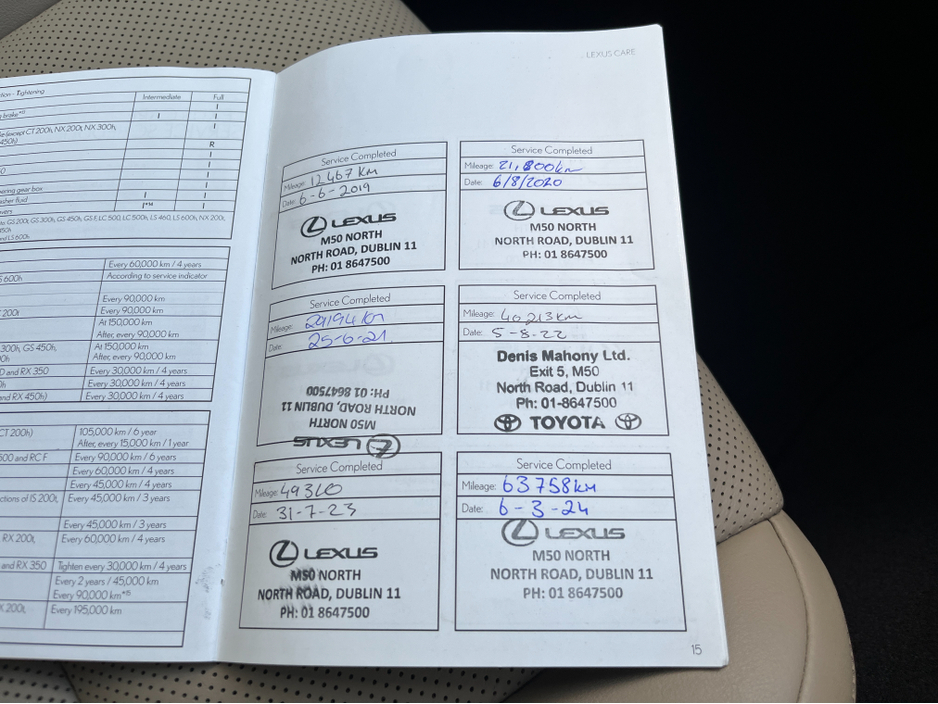 LEXUS CARE
Tightening
Intermediate Full
I
brake*⁵ I I
(except CT 200h, NX 200t, NX 300h, I
450h)
R
I
I
I
gear box I
fluid I I
I*¹⁴ I
GS 200t, GS 300h, GS 450h, GS F, LC 500, LC 500h, LS 460, LS 600h, NX 200t,
450h
and LS 600h.
Every 60,000 km / 4 years
S 600h According to service indicator
Every 90,000 km
200t Every 90,000 km
At 150,000 km
After, every 90,000 km
300h, GS 450h, At 150,000 km
After, every 90,000 km
and RX 350 Every 30,000 km / 4 years
Every 30,000 km / 4 years
and RX 450h) Every 30,000 km / 4 years
CT 200h) 105,000 km / 6 year
After, every 15,000 km / 1 year
500 and RC F Every 90,000 km / 6 years
Every 60,000 km / 4 years
Every 45,000 km / 4 years
of IS 200t, Every 45,000 km / 3 years
Every 45,000 km / 3 years
RX 200t, Every 60,000 km / 4 years
and RX 350 Tighten every 30,000 km / 4 years
Every 2 years / 45,000 km
Every 90,000 km*¹⁵
200t, Every 195,000 km
Service Completed
Mileage: 12467 Km
Date: 6-6-2019
LEXUS
M50 NORTH
NORTH ROAD, DUBLIN 11
PH: 01 8647500
Service Completed
Mileage: 21,800km
Date: 6/8/2020
LEXUS
M50 NORTH
NORTH ROAD, DUBLIN 11
PH: 01 8647500
Service Completed
Mileage: 29194 km
Date: 25-6-21
LEXUS
M50 NORTH
NORTH ROAD, DUBLIN 11
PH: 01 8647500
Service Completed
Mileage: 40213km
Date: 5-8-22
Denis Mahony Ltd.
Exit 5, M50
North Road, Dublin 11
Ph: 01-8647500
TOYOTA
Service Completed
Mileage: 49310
Date: 31-7-23
LEXUS
M50 NORTH
NORTH ROAD, DUBLIN 11
PH: 01 8647500
Service Completed
Mileage: 63758km
Date: 6-3-24
LEXUS
M50 NORTH
NORTH ROAD, DUBLIN 11
PH: 01 8647500
15